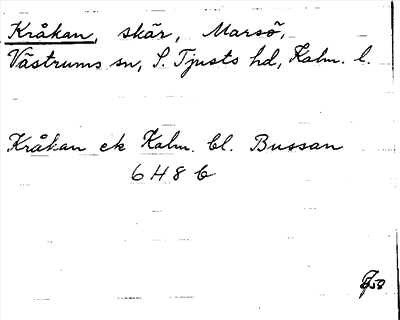 Kråkan, skär, Marsö,
Västrums sn, S. Tjusts hd, Kalm. l.
Kråkan ek Kalm. bl. Bussan
6 H 8 b